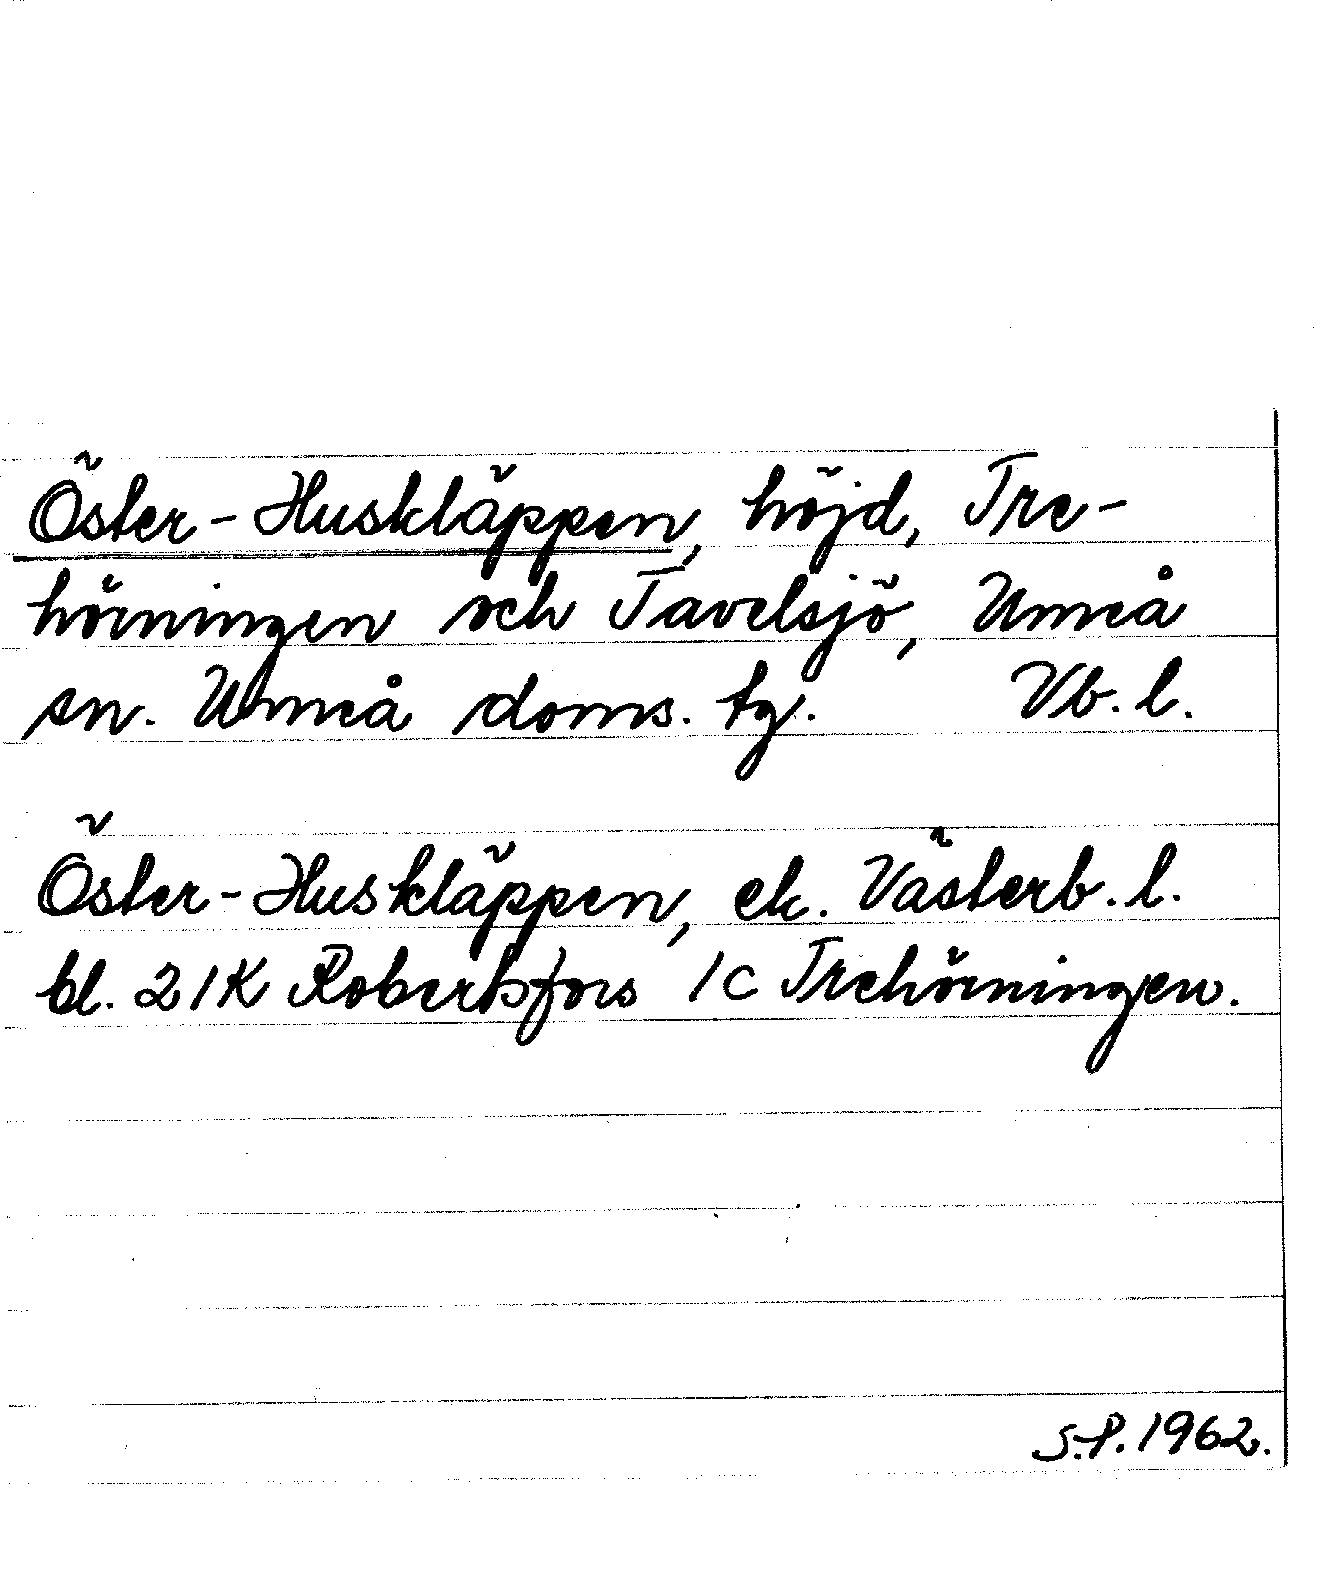 Öster-Huskläppen, höjd, Tre-
hörningen och Tavelsjö, Umeå
sn. Umeå doms. tg. Vb. l.
Öster-Huskläppen, ek. Västerb. l.
bl. 21K Robertsfors 1c Trehörningen.
S.P. 1962.